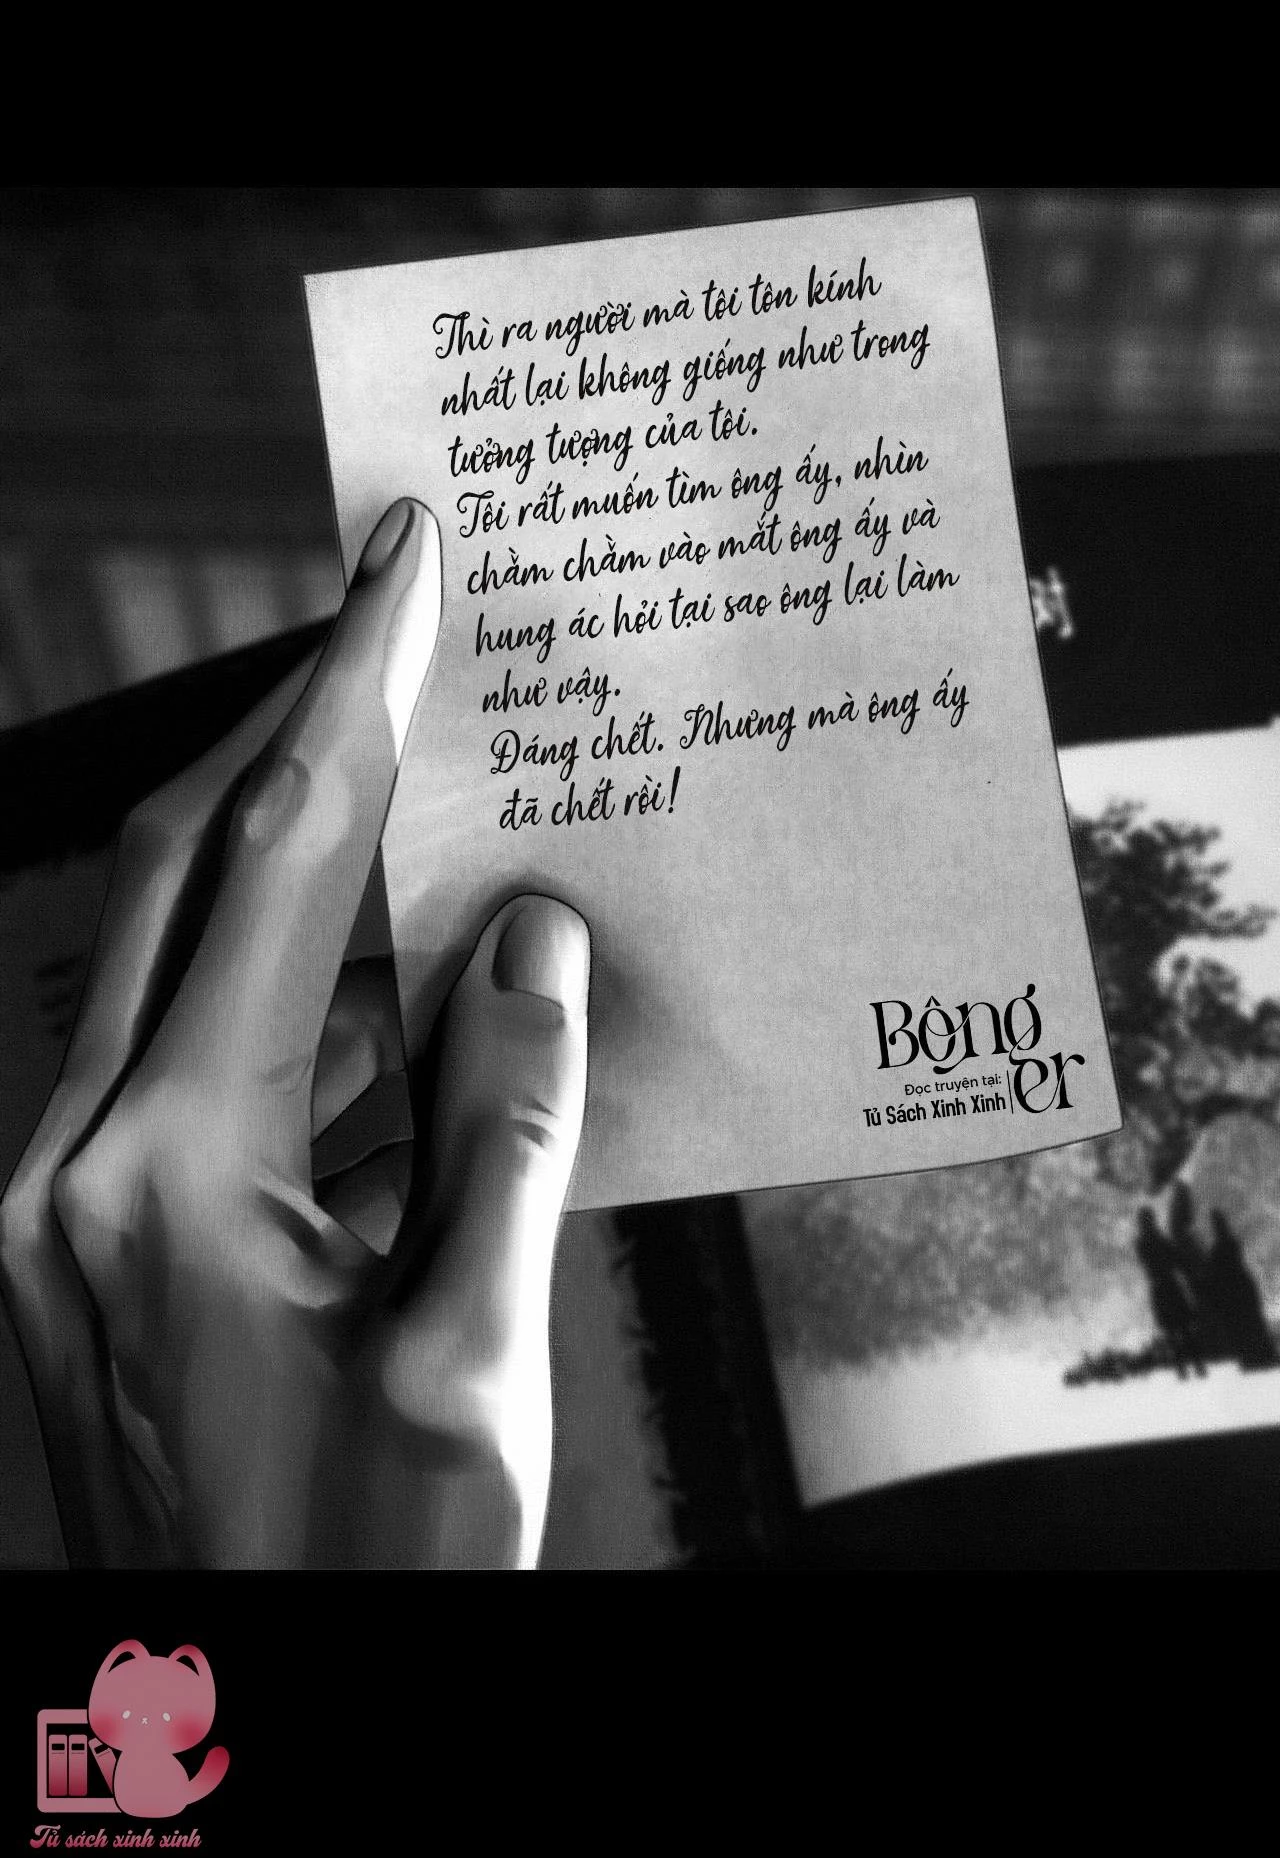 Thì ra người mà tôi tôn kính
nhất lại không giống như trong
tưởng tượng của tôi.
Tôi rất muốn tìm ông ấy, nhìn
chằm chằm vào mắt ông ấy và
hung ác hỏi tại sao ông lại làm
như vậy.
Đáng chết. Nhưng mà ông ấy
đã chết rồi!
Bông
er
Đọc truyện tại:
Tủ Sách Xinh Xinh
Tủ sách xinh xinh